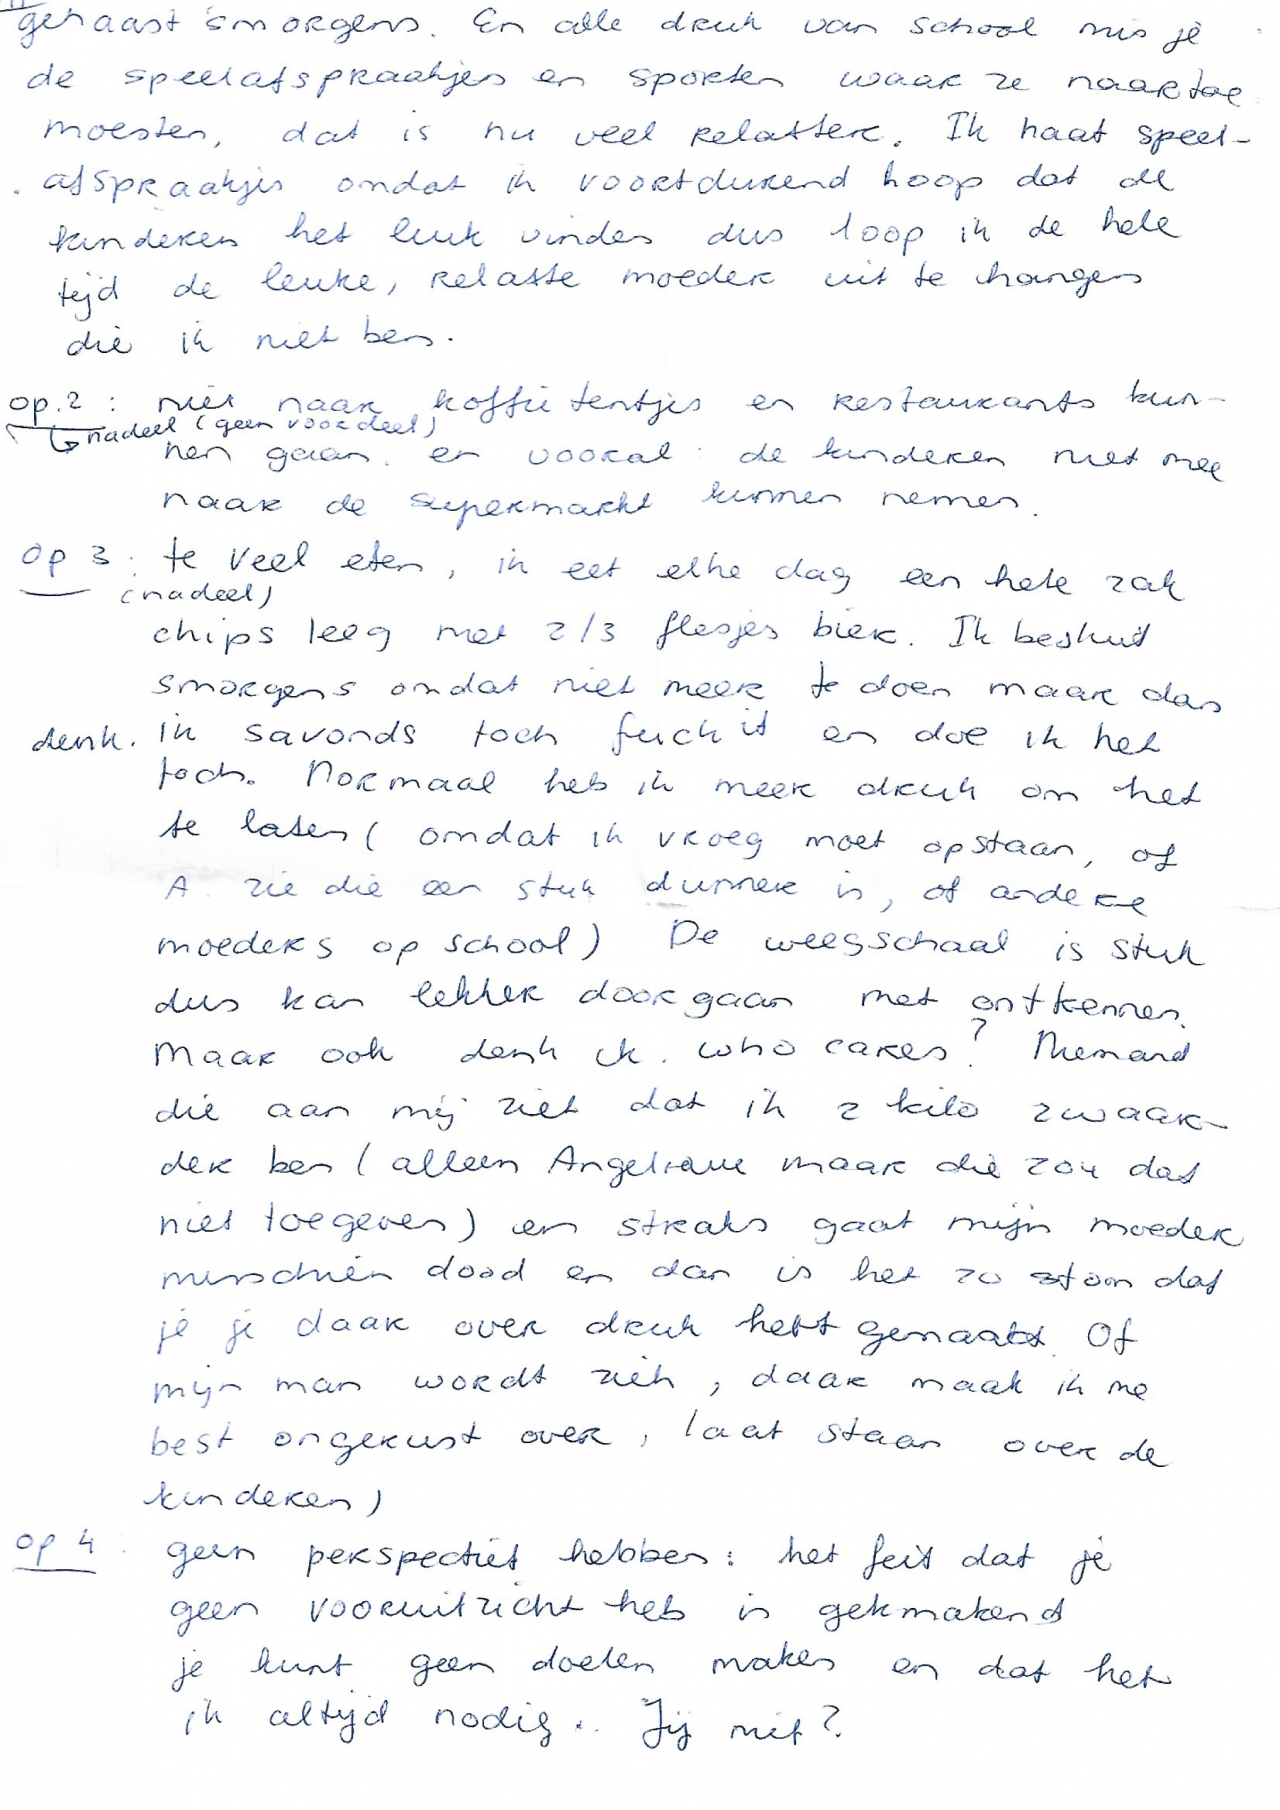 gehaast smorgens. En alle druk van school mis je
de speelafspraakjes en sporten waar ze naartoe
moesten, dat is nu veel relaxter. Ik haat speel-
afspraakjes omdat ik voortdurend hoop dat de
kinderen het leuk vinden dus loop ik de hele
tijd de leuke, relaxte moeder uit te hangen
die ik niet ben.
op. 2 : niet naar koffietentjes en restaurants kun-
nadeel (geen voordeel)
nen gaan. en vooral: de kinderen niet mee
naar de supermarkt kunnen nemen.
op 3 : te veel eten, ik eet elke dag een hele zak
(nadeel)
chips leeg met 2/3 flesjes bier. Ik besluit
smorgens omdat niet meer te doen maar dan
denk. ik savonds toch fuck it en doe ik het
toch. Normaal heb ik meer druk om het
te laten ( omdat ik vroeg moet opstaan, of
A. zie die een stuk dunner is, of andere
moeders op school) De weegschaal is stuk
dus kan lekker doorgaan met ontkennen.
Maar ook denk ik. who cares? Niemand
die aan mij ziet dat ik 2 kilo zwaar-
der ben ( alleen maar die zou dat
niet toegeven) en straks gaat mijn moeder
misschien dood en dan is het zo stom dat
je je daar over druk hebt gemaakt. Of
mijn man wordt ziek, daar maak ik me
best ongerust over, laat staan over de
kinderen)
op 4 : geen perspectief hebben: het feit dat je
geen vooruitzicht heb is gekmakend
je kunt geen doelen maken en dat heb
ik altijd nodig.. Jij niet?